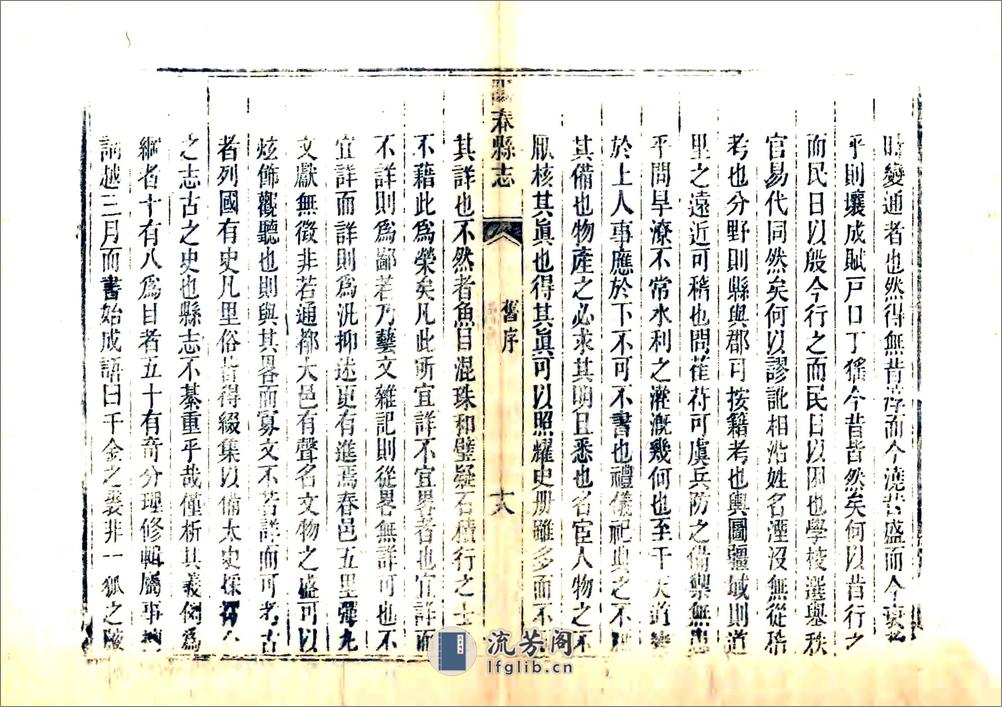 時變通者也然得無昔淳而今澆昔盛而今衰者
乎則壤成賦戸口丁猶今昔皆然矣何以昔行之
而民日以殷今行之而民日以因也學校選舉秩
官易代同然矣何以謬訛相沿姓名湮沒無從稽
考也分野則縣與郡可按籍考也輿圖疆域則道
里之遠近可稽也問萑苻可虞兵防之備禦無患
乎問旱潦不常水利之灌漑幾何也至于天道變
於上人事應於下不可不書也禮儀祀典之不
其備也物產之必求其明且悉也名宦人物之不
厭核其眞也得其眞可以照耀史册雖多而不
春縣志
舊序
十八
其詳也不然者魚目混珠和璧疑石積行之士
不藉此爲榮矣凡此所宜詳不宜畧者也宜詳而
不詳則爲鄙若乃藝文雜記則從畧無詳可也不
宜詳而詳則爲汎抑述更有進焉春邑五里彈丸
文獻無徵非若通都大邑有聲名文物之盛可以
炫飾觀聽也則與其畧而寡文不若詳而可考古
者列國有史凡里俗皆得綴集以備太史採擇今
之志古之史也縣志不綦重乎哉僅析其義例爲
綱者十有八爲目者五十有奇分理修輯屬事
詞越三月而書始成語曰千金之裘非一狐之腋
流芳阁
lfglib.cn